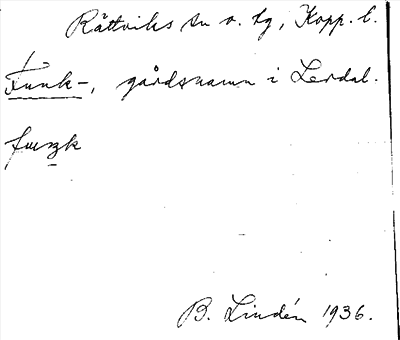 Rättviks sn o. tg, Kopp. l.
Funk-, gårdsnamn i Lerdal.
fuŋk
B. Lindén 1936.